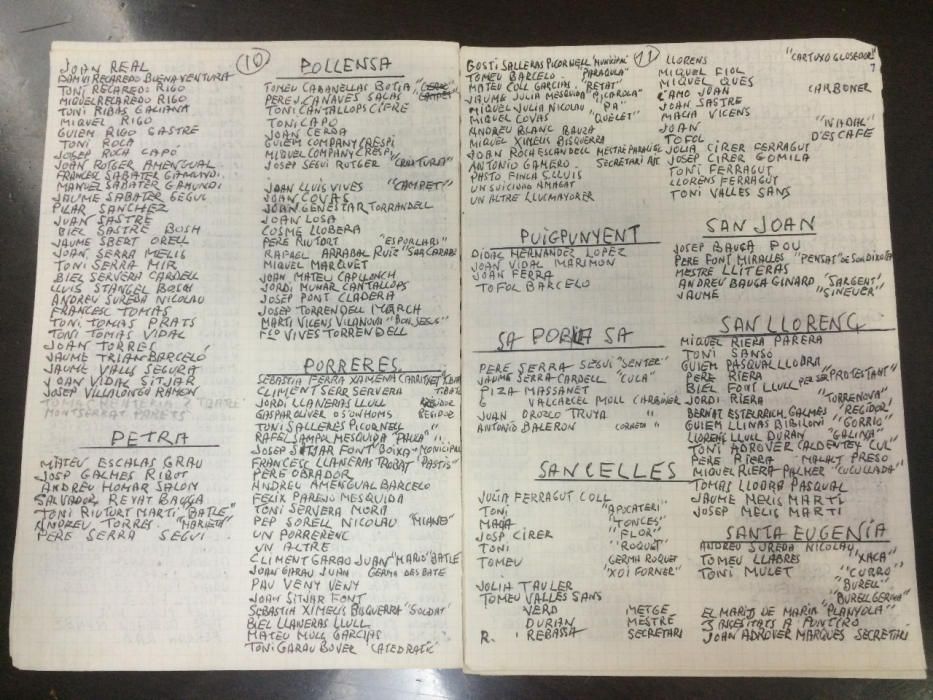 10
JOAN REAL
DAMIÀ RECAREDO BUENAVENTURA
TONI RECAREDO RIGO
MIQUEL RECAREDO RIGO
TONI RIBAS GALIANA
MIQUEL RIGO
GUIEM RIGO SASTRE
TONI ROCA
JOSEP ROCA CAPÓ
JOAN ROTGER AMENGUAL
FRANCESC SABATER GAMUNDI
MANUEL SABATER GAMUNDI
JAUME SABATER SEGUI
PILAR SANCHEZ
JUAN SASTRE
BIEL SASTRE BOSH
JAUME SBERT ORELL
JOAN SERRA MELIS
TONI SERRA MIR
BIEL SERVERA CARDELL
LLUIS STANGEL BOSCH
ANDREU SUREDA NICOLAU
FRANCESC TOMAS
TONI TOMAS PRATS
TONI TOMAS VIDAL
JOAN TORRES
JAUME TRIAN BARCELO
JAUME VALLS SEGURA
JOAN VIDAL SITJAR
JOSEP VILLALONGA RAMON
PETRA
MATEU ESCALAS GRAU
JOSEP GALMES RIBOT
ANDREU HOMAR SALOM
SALVADOR REVAT BAUÇA
TONI RIUTORT MARTI "BATLE"
ANDREU TORRES "MARIETA"
PERE SERRA SEGUI
POLLENSA
TOMEU CABANELLAS BOTIA
PERE J CANAVES SALAS
TONI CANTALLOPS CIFRE
TONI CAPÓ
JOAN CERDA
GUIEM COMPANY CRESPI
MIQUEL COMPANY CRESPI
JOSEP SEGUI ROTGER "CRIATURA"
JOAN LLUIS VIVES "CAMPET"
JOAN COVAS
JOAN GENESTAR TORRANDELL
JOAN LOSA
COSME LLOBERA
PERE RIUTORT "ESPORLARI"
RAFAEL ARRABAL RUIZ "SAR CARABI
MIQUEL MARQUET
JOAN MATEU CAPLLONCH
JORDI MUNAR CANTALLOPS
JOSEP PONT CLADERA
JOSEP TORRENDELL MARCH
MARTI VICENS VILANOVA "BON JESUS"
FCO VIVES TORRENDELL
PORRERES
SEBASTIA FERRA XIMENA
CLIMENT SERR SERVERA
JORDI LLANERAS LLULL REGIDOR
GASPAR OLIVER D'S'ONHOMS REGIDOR
TONI SALLERES PICORNELL "
RAFEL SAMPOL MESQUIDA "PAULA" "
JOSEP SITJAR FONT "BOIXA" MUNICIPAL
FRANCESC LLANERAS TROBAT "PASTIS"
PERE OBRADOR
ANDREU AMENGUAL BARCELO
FELIX PAREJO MESQUIDA
TONI SERVERA MORA
PEP SORELL NICOLAU "MIANO"
UN PORRERENC
UN ALTRE
CLIMENT GARAU JUAN "MARIO" BATLE
JOAN GARAU JUAN GERMA DES BATE
PAU VENY VENY
JOAN SITJAR FONT
SEBASTIA XIMELIS BISQUERRA "SOLDAT"
BIEL LLANERAS LLULL
MATEU MOLL GARCIAS
TONI GARAU BOVER CATEDRATIC
11
GOSTI SALLERAS PICORNELL "MUNICIPAL"
TOMEU BARCELO "PARAQULA"
MATEU COLL GARCIAS "RETAT"
JAUME JULIA MESQUIDA "PICAROLA"
MIQUEL JULIA NICOLAU "PA"
MIQUEL COVAS "QUELET"
ANDREU BLANC BAUZA
MIQUEL XIMELIS BISQUERRA
JOAN ROCH ESCANDELL MESTRE
ANTONIO GAMERO SECRETARI
PASTO FINCA S.LLUIS
UN SUICIDAD AMAGAT
UN ALTRE LLUCMAYORER
PUIGPUNYENT
DIDAC HERNANDEZ LOPEZ
JOAN VIDAL MARIMON
JOAN FERRA
TOFOL BARCELO
SA POBLA SA
PERE SERRA SEGUI "SENTEE"
JAUME SERRA CARDELL "CULA"
PIZA MASSANET
G VALCARCEL MOLL CARBONER
JUAN OROZCO TRUYA "
ANTONIO BALERON CORNETA "
SANCELLES
JULIA FERRAGUT COLL
TONI "APUCATERI"
MACIA "TONCES"
JOSEP CIRER "FLOR"
TONI "ROQUET"
TOMEU GERMA ROQUET
"XOI FORNER"
JULIA TAULER
TOMEU VALLES SANS
VERD METGE
DURAN MESTRE
R. REBASSA SECRETARI
LLORENS "CARTUXO GLOSEDOR"
MIQUEL FIOL
MIQUEL QUES
L'AMO JOAN CARBONER
JOAN SASTRE
MACIA VICENS
JOAN "NADAL"
TOFOL D'ES CAFE
JULIA CIRER FERRAGUT
JOSEP CIRER GOMILA
TONI FERRAGUT
LLORENS FERRAGUT
TONI VALLES SANS
SAN JOAN
JOSEP BAUÇA POU
PERE FONT MIRALLES "PENSAT" DE
MESTRE LLITERAS
ANDREU BAUÇA GINARD "SARGENT"
JAUME "SINEUER"
SAN LLORENÇ
MIQUEL RIERA PARERA
TONI SANSÓ
GUIEM PASQUAL LLODRA
PERE RIERA
BIEL FONT LLULL PER SER "PROTESTANT"
JORDI RIERA "TORRENOVA"
BERNAT ESTELRRICH GALMES "REGIDOR"
GUIEM LLINAS BIBILONI "GORRIO"
LLORENS LLULL DURAN "GALINA"
TONI ADROVER CALDENTEY "CUL"
PERE RIERA "MALALT PRESO
MIQUEL RIERA PALMER "CUCULLADA"
TOMAS LLODRA PASQUAL
JAUME MELIS MARTI
JOSEP MELIS MARTI
SANTA EUGENIA
ANDREU SUREDA NICOLAU
TOMEU LLABRES "XACA"
TONI MULET "CURRO"
"BURELL"
"BURELL GERMA"
EL MARIT DE MARIA "PLANYOLA"
3 ASESITATS A PUNTIRO
JOAN ADROVER MARQUES SECRETARI